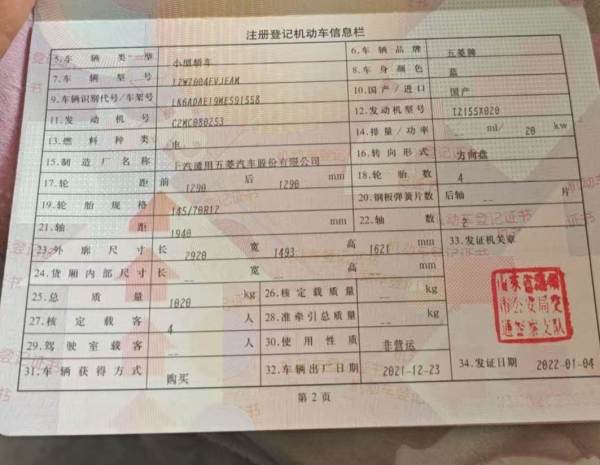 注册登记机动车信息栏
5.车辆类型 小型轿车 6.车辆品牌 五菱牌
7.车辆型号 LZW7004EVJEAM 8.车身颜色 蓝
9.车辆识别代号/车架号 LK6ADAE19ME591558 10.国产/进口 国产
11.发动机号 C2MC080253 12.发动机型号 TZ155X020
13.燃料种类 电 14.排量/功率 -- ml/ 20 kw
15.制造厂名称 上汽通用五菱汽车股份有限公司 16.转向形式 方向盘
17.轮距 前 1290 后 1290 mm 18.轮胎数 4
19.轮胎规格 145/70R12 20.钢板弹簧片数 后轴 -- 片
21.轴距 1940 mm 22.轴数 2
23.外廓尺寸 长 2920 宽 1493 高 1621 mm 33.发证机关章
24.货厢内部尺寸 长 -- 宽 -- 高 -- mm
25.总质量 1020 kg 26.核定载质量 -- kg
27.核定载客 4 人 28.准牵引总质量 -- kg
29.驾驶室载客 -- 人 30.使用性质 非营运
31.车辆获得方式 购买 32.车辆出厂日期 2021-12-23 34.发证日期 2022-01-04
市公安局交
通警察支队
第2页